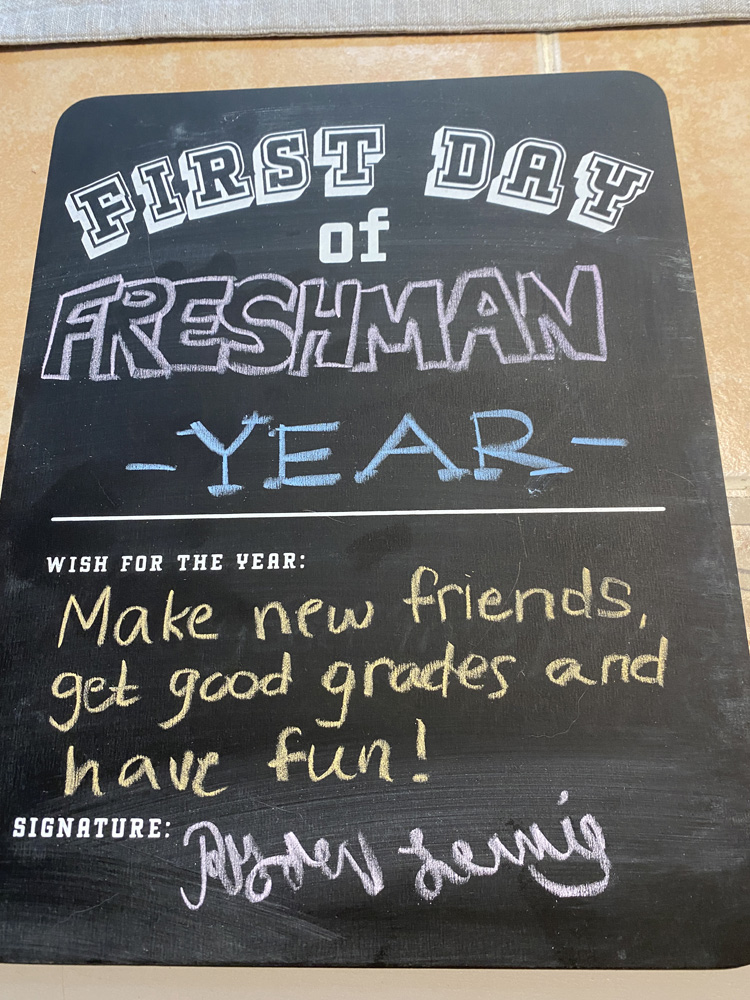 FIRST DAY
of
FRESHMAN
-YEAR-
WISH FOR THE YEAR:
Make new friends,
get good grades and
have fun!
SIGNATURE: Ryder